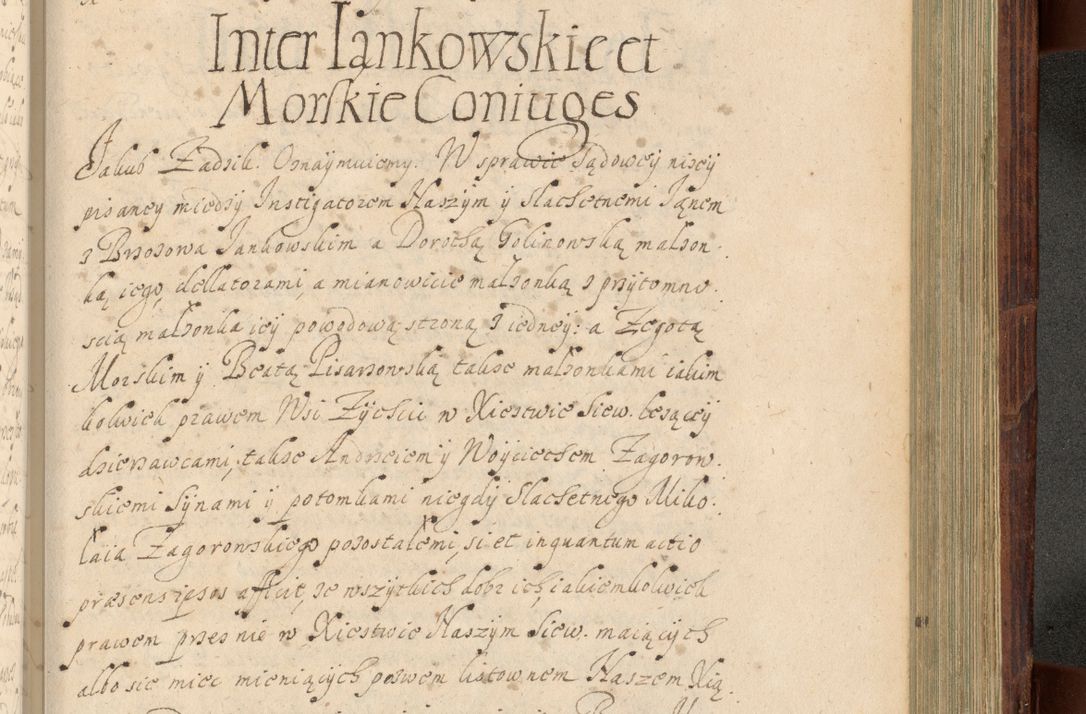 Inter Iąnkowskie et
Morskie Coniuges
Jakub Zadzik. Oznaÿmuiemy. W sprawie Sądoweÿ nizeÿ
pisaneÿ miedzÿ Instigatorem Naszÿm ÿ slachetnemi Iąnem
z Brzozowa Jankowskim a Dorothą Golinowską malzon.
ką iego, dellatorami, a mianowicie malzonką z przÿtomno.
scią malzonka ieÿ powodową stroną z iedneÿ: a Zegotą
Morskim ÿ Beatą Pisarzowską takze malzonkami iakim
kolwiek prawem Wsi Zÿchci w Xiestwie Siew. lezączeÿ
dzierzawcami, takze Andrzeiem ÿ Woÿciechem Zagorow.
skiemi Sÿnami ÿ potomkami niegdÿ slachetnego Miko.
laia Zagorowskiego pozostałemi, si et inquantum actio
præsens ipsos afficit, ze wszÿtkich dobr ich, iakiemkolwiek
prawem przez nie w Xiestwie Naszÿm Siew. maiącÿch
albo sie miec mieniącÿch pozwem listownem Naszem Xią.